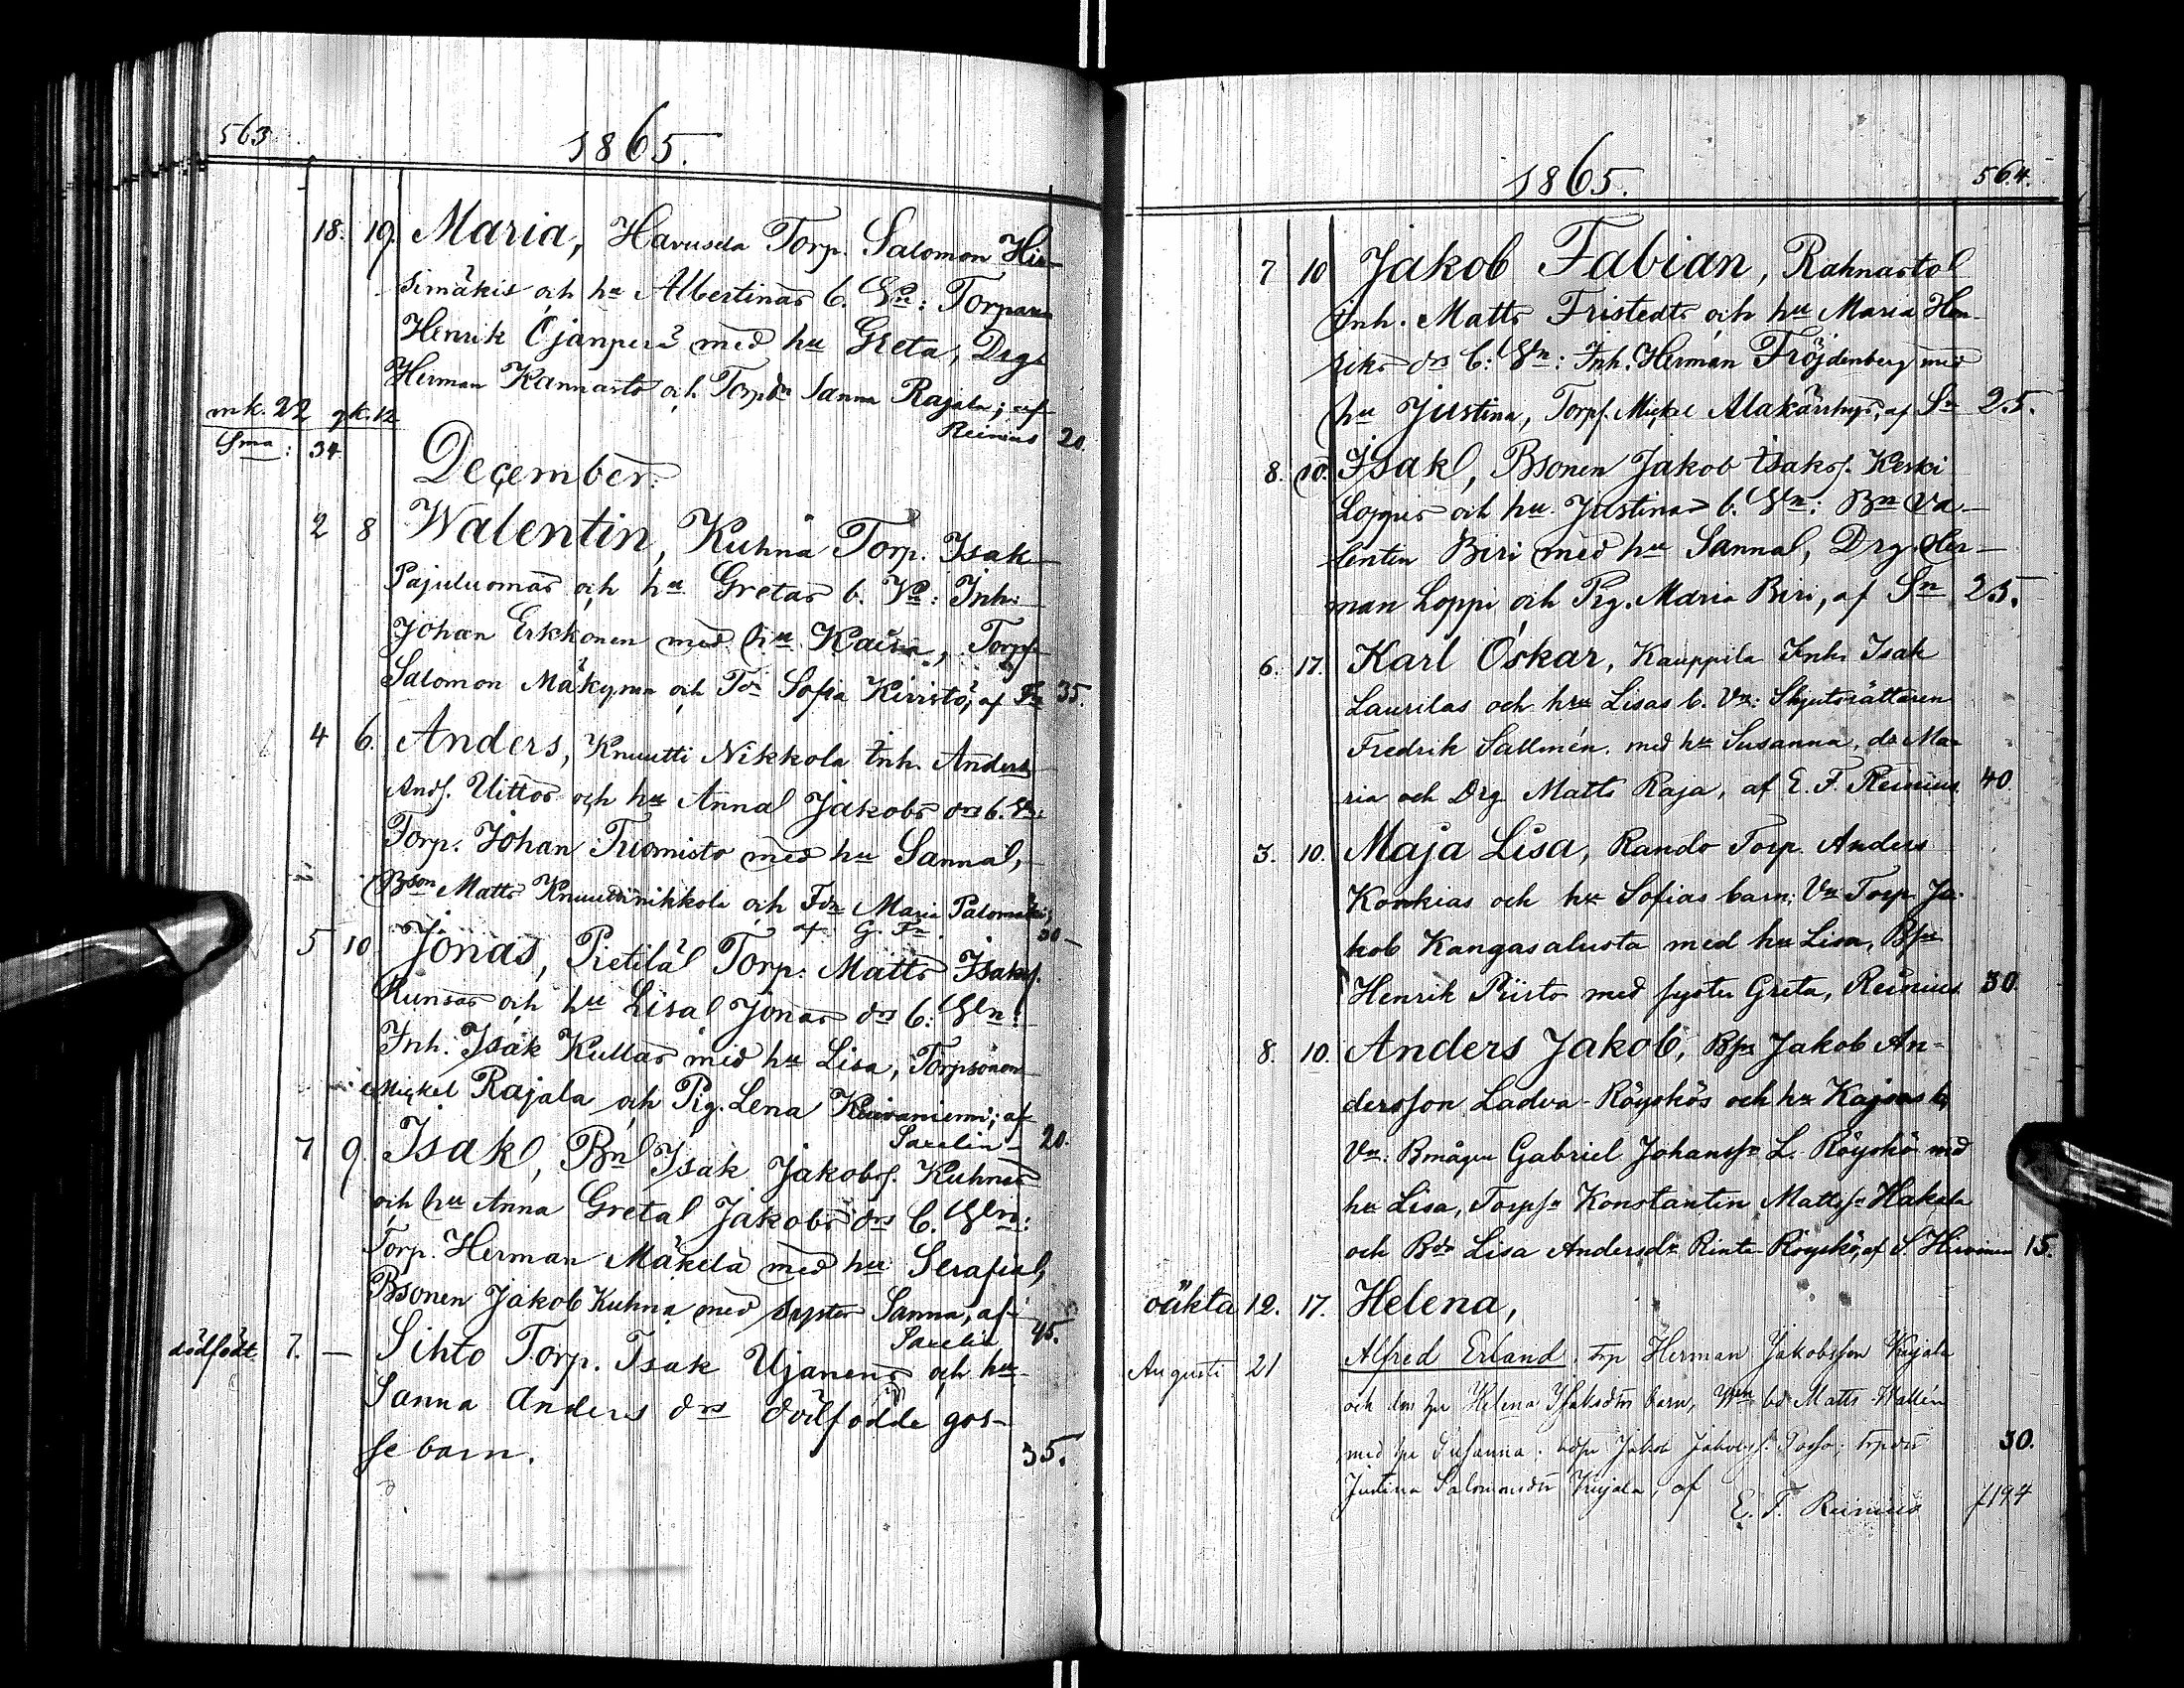 563
1865.
18. 19. Maria, Havusela Torp. Salomon Hir-
simäkis och hu Albertinas b. Vn: Torparen
Henrik Ojanperä med hu Greta, Drg
Herman Kannasto och Torpdr Sanna Rajala; af
Reinius 20.
mk. 22 qk. 12
Sma: 34.
December.
2 8 Walentin, Kuhna Torp. Isak
Pajuluomas och hu Gretas b. Vn: Inh:
Johan Erkkonen med hu Kaisa, Torps
Salomon Mäkynen och Td: Sofia Kivistö, af Fn 35.
4 6. Anders, Knuutti Nikkola Inh. Anders
Ands. Uittos och hu Anna Jakobs drs b. Vn:
Torp. Johan Tuomisto med hu Sanna,
Bson Matts Knuuttinikkola och Fdn Maria Palomäki,
af G. Fn. 30-
5 10 Jonas, Pietilä Torp. Matts Isaks.
Runsas och hu Lisa Jonas drs b: Vn:
Inh. Isak Kullas med hu Lisa, Torpsonen
Mickel Rajala och Pig. Lena Keivaniemi; af
Saxelin - 20.
7 9. Isak, Bn Isak Jakobs. Kuhnas
och hu Anna Greta Jakobs drs b. Vn:
Torp. Herman Mäkelä med hu Serafia,
Bsonen Jakob Kuhna med syster Sanna, af
Saxelin 45.
dödfödt. 7. - Sihto Torp. Isak Ujanens och hu
Sanna Anders drs dödfödde gos-
se barn. 35.
1865. 564.
7 10 Jakob Fabian, Rahnasto
Inh. Matts Fristedts och hu Maria Hen-
riks drs b: Vn: Inh. Herman Fröjdenberg med
hu Justina, Torps. Mickel Alakärrhys, af Sn 25.
8. 10. Isak, Bsonen Jakob Isaks. Keski
Loppis och hu Justinas b. Vn: Bn Va-
lentin Biri med hu Sanna, Drg. Her-
man Loppi och Pig. Maria Biri, af Sn 25.
6. 17. Karl Oskar, Kauppila Inh. Isak
Laurilas och hru Lisas b. Vn: Skjutsrättaren
Fredrik Sallmén. med hu Susanna, dr Ma-
ria och Drg Matts Raja, af E. F. Reinius 40
3. 10. Maja Lisa, Rando Torp. Anders
Konkias och hu Sofias barn; Vn Torp. Ja-
kob Kangasalusta med hu Lisa, Bsn
Henrik Piirto med syster Greta, Reinius 30.
8. 10. Anders Jakob, Bsn Jakob An-
dersson Ladva-Röyskös och hu Kajsas b,
Vn: Bmågen Gabriel Johanss. L. Röyskö med
hu Lisa, Torpsn Konstantin Mattss. Hakala
och Bdr Lisa Andersdr Rinta-Röyskö, af S. Hirvinen 15.
oäkta 12. 17. Helena,
Augusti 21 Alfred Erland. Trp Herman Jakobsson Kujala
och dess hu Helena Isaksdrs barn, Wn bd Matts Wallén
med hu Susanna; bdsn Jakob Jakobss. Passo; trpdr 30.
Justina Salomonsdr Kujala, af
E. F. Reinius 1194